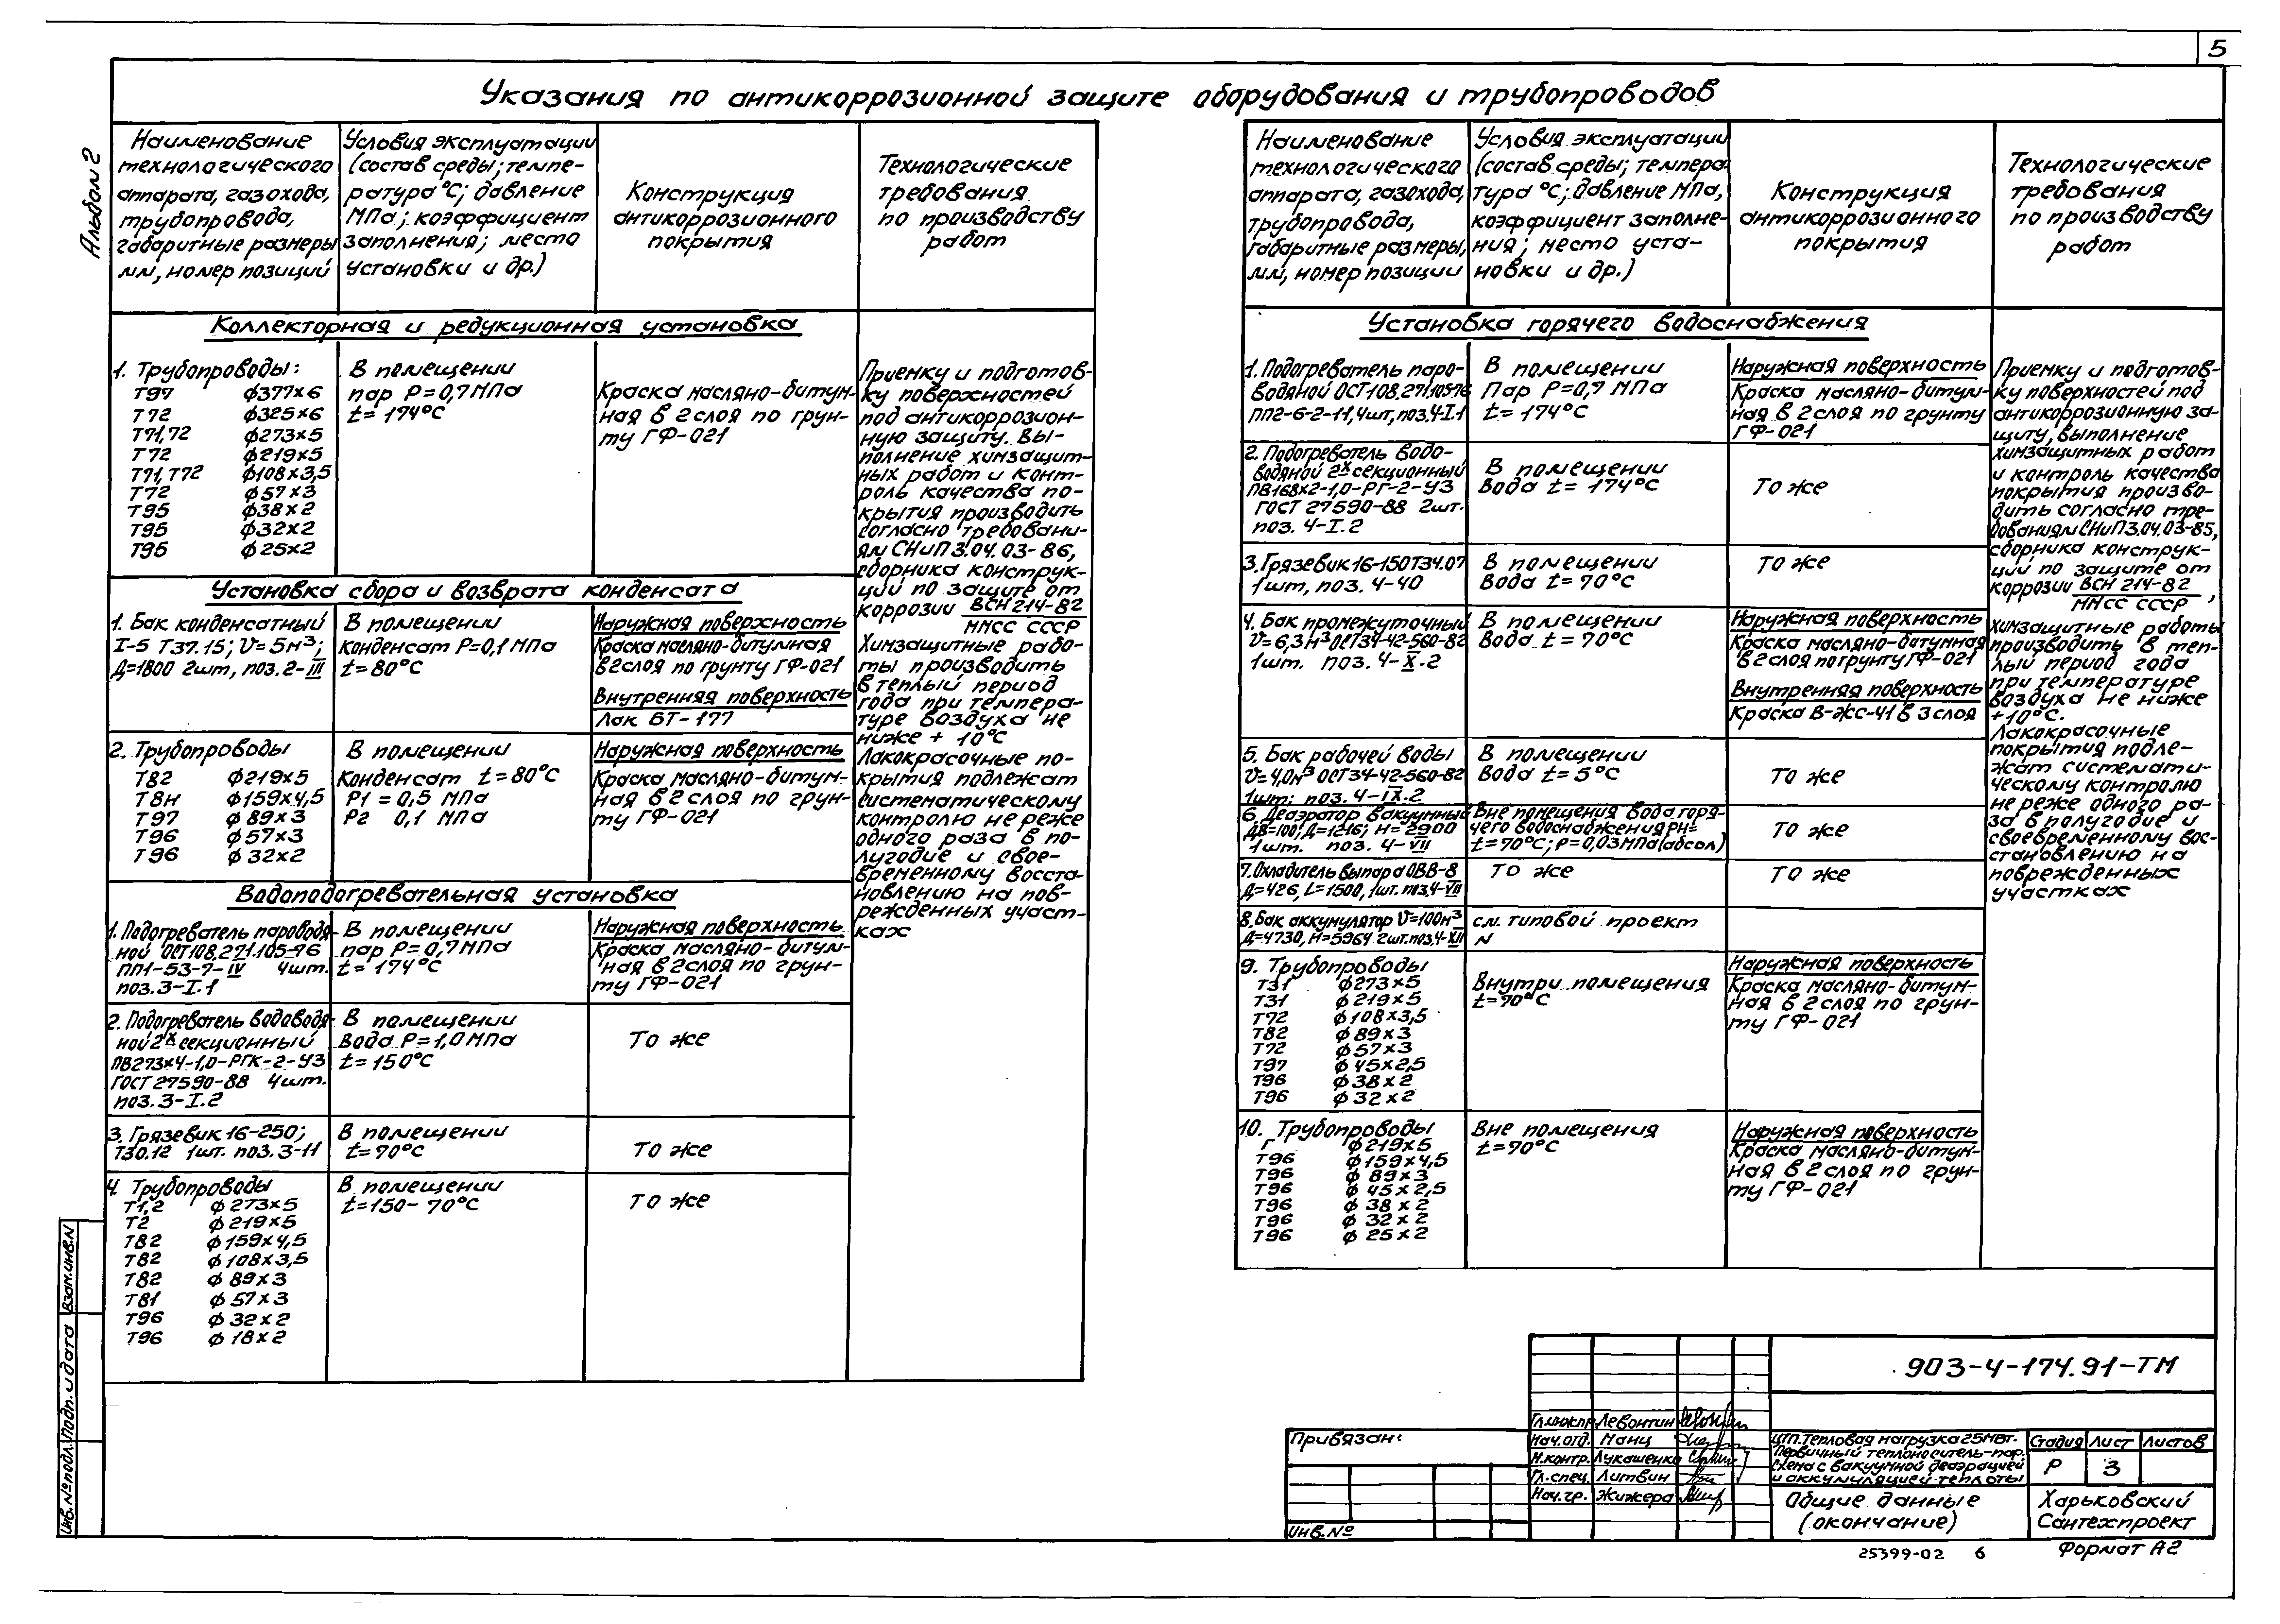 5
Альбом 2
Указания по антикоррозионной защите оборудования и трубопроводов
Наименование
технологического
аппарата, газохода,
трубопровода,
габаритные размеры
мм, номер позиций
Условия эксплуатации
(состав среды; темпе-
ратура °С; давление
МПа; коэффициент
заполнения; место
установки и др.)
Конструкция
антикоррозионного
покрытия
Технологические
требования
по производству
работ
Коллекторная и редукционная установка
1. Трубопроводы:
Т97 ф377×6
Т72 ф325×6
Т71,72 ф273×5
Т72 ф219×5
Т71,Т72 ф108×3,5
Т72 ф57×3
Т95 ф38×2
Т95 ф32×2
Т95 ф25×2
В помещении
пар Р=0,7МПа
t=174°С
Краска масляно-битум-
ная в 2 слоя по грун-
ту ГФ-021
Приемку и подготов-
ку поверхностей
под антикоррозион-
ную защиту. Вы-
полнение химзащит-
ных работ и конт-
роль качества по-
крытия производить
согласно требовани-
ям СНиП 3.04.03-86,
сборника конструк-
ций по защите от
коррозии ВСН 214-82
ММСС СССР
Химзащитные рабо-
ты производить
в теплый период
года при темпера-
туре воздуха не
ниже + 10°С
Лакокрасочные по-
крытия подлежат
систематическому
контролю не реже
одного раза в по-
лугодие и свое-
временному восста-
новлению на пов-
режденных участ-
ках
Установка сбора и возврата конденсата
1. Бак конденсатный
I-5 Т37.15; V=5м³;
Д=1800 2шт, поз.2-III
В помещении
конденсат Р=0,1МПа
t=80°С
Наружная поверхность
Краска масляно-битумная
в 2 слоя по грунту ГФ-021
Внутренняя поверхность
Лак БТ-177
2. Трубопроводы
Т82 ф219×5
Т8Н ф159×4,5
Т97 ф89×3
Т96 ф57×3
Т96 ф32×2
В помещении
Конденсат t=80°С
Р1=0,5 МПа
Р2 0,1 МПа
Наружная поверхность
Краска масляно-битум-
ная в 2 слоя по грун-
ту ГФ-021
Водоподогревательная установка
1. Подогреватель пароводя-
ной ОСТ108.271.105-76
ПП1-53-7-IV 4шт.
поз.3-I.1
В помещении
пар Р=0,7МПа
t=174°С
Наружная поверхность
Краска масляно-битум-
ная в 2слоя по грун-
ту ГФ-021
2. Подогреватель водоводя-
ной 2х секционный
ПВ273×4-1,0-РГК-2-У3
ГОСТ 27590-88 4шт.
поз.3-I.2
В помещении
Вода Р=1,0МПа
t=150°С
То же
3. Грязевик 16-250;
Т30.12 1шт. поз.3-11
В помещении
t=70°С
То же
4. Трубопроводы
Т1,2 ф273×5
Т2 ф219×5
Т82 ф159×4,5
Т82 ф108×3,5
Т82 ф89×3
Т81 ф57×3
Т96 ф32×2
Т96 ф18×2
В помещении
t=150-70°С
То же
Наименование
технологического
аппарата, газохода,
трубопровода,
габаритные размеры,
мм, номер позиции
Условия эксплуатации
(состав среды; темпера-
тура °С; давление МПа,
коэффициент заполне-
ния; место уста-
новки и др.)
Конструкция
антикоррозионного
покрытия
Технологические
требования
по производству
работ
Установка горячего водоснабжения
1. Подогреватель паро-
водяной ОСТ108.271.105-76
ПП2-6-2-11, 4шт, поз.4-I.1
В помещении
Пар Р=0,7 МПа
t=174°С
Наружная поверхность
Краска масляно-битум-
ная в 2 слоя по грунту
ГФ-021
Приемку и подготов-
ку поверхностей под
антикоррозионную за-
щиту, выполнение
химзащитных работ
и контроль качества
покрытия произво-
дить согласно тре-
бованиям СНиП3.04.03-85,
сборника конструк-
ций по защите от
коррозии ВСН 214-82
ММСС СССР ,
химзащитные работы
производить в теп-
лый период года
при температуре
воздуха не ниже
+10°С.
Лакокрасочные
покрытия подле-
жат системати-
ческому контролю
не реже одного ра-
за в полугодие и
своевременному вос-
становлению на
поврежденных
участках
2. Подогреватель водо-
водяной 2х секционный
ПВ168×2-1,0-РГ-2-У3
ГОСТ 27590-88 2шт.
поз. 4-I.2
В помещении
Вода t=174°С
То же
3. Грязевик 16-150Т34.07
1шт, поз. 4-40
В помещении
Вода t=70°С
То же
4. Бак промежуточный
V=6,3м³ ОСТ34-42-560-82
1шт. поз. 4-X.2
В помещении
Вода t=70°С
Наружная поверхность
Краска масляно-битумная
в 2слоя по грунту ГФ-021
Внутренняя поверхность
Краска В-ЖС-41 в 3 слоя
5. Бак рабочей воды
V=4,0м³ ОСТ34-42-560-82
1шт; поз. 4-IX.2
В помещении
Вода t=5°С
То же
6. Деаэратор вакуумный
ДВ=100; Д=1216; Н=2900
1шт. поз. 4-VII
Вне помещения вода горя-
чего водоснабжения рн=
t=70°С; р=0,03МПа(абсол)
То же
7. Охладитель выпара ОВВ-8
Д=426, L=1500, 1шт. поз.4-VII
То же
То же
8. Бак аккумулятор V=100м³
Д=4730, Н=5964 2шт. поз.4-XII
см. типовой проект
N
9. Трубопроводы
Т31 ф273×5
Т31 ф219×5
Т72 ф108×3,5
Т82 ф89×3
Т72 ф57×3
Т97 ф45×2,5
Т96 ф38×2
Т96 ф32×2
Внутри помещения
t=70°С
Наружная поверхность
Краска масляно-битум-
ная в 2 слоя по грун-
ту ГФ-021
10. Трубопроводы
Г ф219×5
Т96 ф159×4,5
Т96 ф89×3
Т96 ф45×2,5
Т96 ф38×2
Т96 ф32×2
Т96 ф25×2
Вне помещения
t=70°С
Наружная поверхность
Краска масляно-битум-
ная в 2 слоя по грун-
ту ГФ-021
Инв.№подл. Подп. и дата Взам.инв.N
Привязан:
Инв.№
Гл.инж.пр. Левонтин
Нач.отд. Манц
Н.контр. Лукашенко
Гл.спец. Литвин
Нач.гр. Жижера
903-4-174.91-ТМ
ЦТП. Тепловая нагрузка 25МВт.
Первичный теплоноситель-пар.
Схема с вакуумной деаэрацией
и аккумуляцией теплоты
Стадия Лист Листов
Р 3
Общие данные
(окончание)
Харьковский
Сантехпроект
25399-02 6
Формат А2